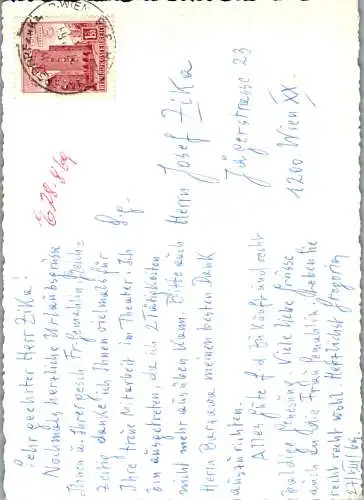 Sehr geehrter Herr Zika!
Nochmals herzliche Urlaubsgrüsse
Ihnen u. Ihrer gesch. Fr. Gemahlin. Gleich-
zeitig danke ich Ihnen vielmals für
Ihre treue Mitarbeit im Theater. Ich
bin ausgetreten, da ich 2 Tätigkeiten
nicht mehr ausüben kann. Bitte auch
Herrn Bartawa meinen besten Dank
auszurichten.
Alles Gute f. d. Zukunft und recht
baldige Genesung. Viele liebe Grüsse
auch an die Frau Gemahlin. Leben Sie
recht recht wohl. Herzlichst Gregoritz
/VIII/69
E 28.8/69
S.g.
Herrn Josef Zika
Jägerstrasse 23
1200 Wien XX.
WIEN
REPUBLIK ÖSTERREICH